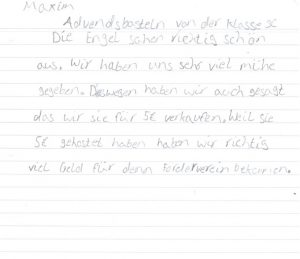 Maxim
Advendsbasteln von der Klasse 3c
Die Engel sahen richtig schön
aus. Wir haben uns sehr viel mühe
gegeben. Deswegen haben wir auch gesagt
das wir sie für 5€ verkaufen. Weil sie
5€ gekostet haben haben wir richtig
viel Geld für denn Förderverein bekomen.